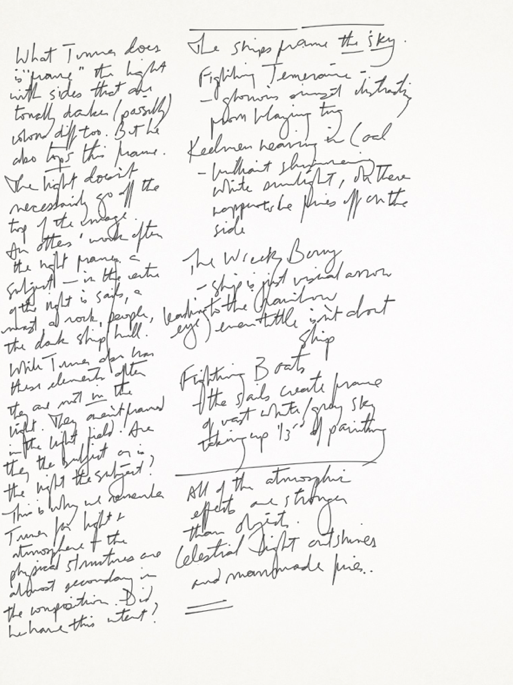 What Turner does
is "frame" the light
with sides that are
tonally darker (possibly
colour diff too. But he
also tops this frame.
The light doesn't
necessarily go off the
top of the image.
In others' work often
the light frames a
subject — in the centre
of the light is sails, a
mast, a rock, people,
the dark ship hull.
While Turner also has
these elements often
they are not in the
light. They aren't framed
in the light field. Are
they the subject or is
the light the subject?
This is why we remember
Turner for light &
atmosphere & the
physical structures are
almost secondary in
the composition. Did
he have this intent?
The ships frame the sky.
Fighting Temeraire –
– glowing sunset distracting
from blazing tug
Keelmen heaving in Coal
– brilliant shimmering
white sunlight, on there
happens to be fires off on the
side
The Wreck Buoy
– ship is just visual arrow
leading to the rainbow
eye) even title isn't about
ship
Fishing Boats
– the sails create frame
of vast white/gray sky
taking up 1/3 of painting
All of the atmospheric
effects are stronger
than objects.
Celestial light outshines
and manmade fires..